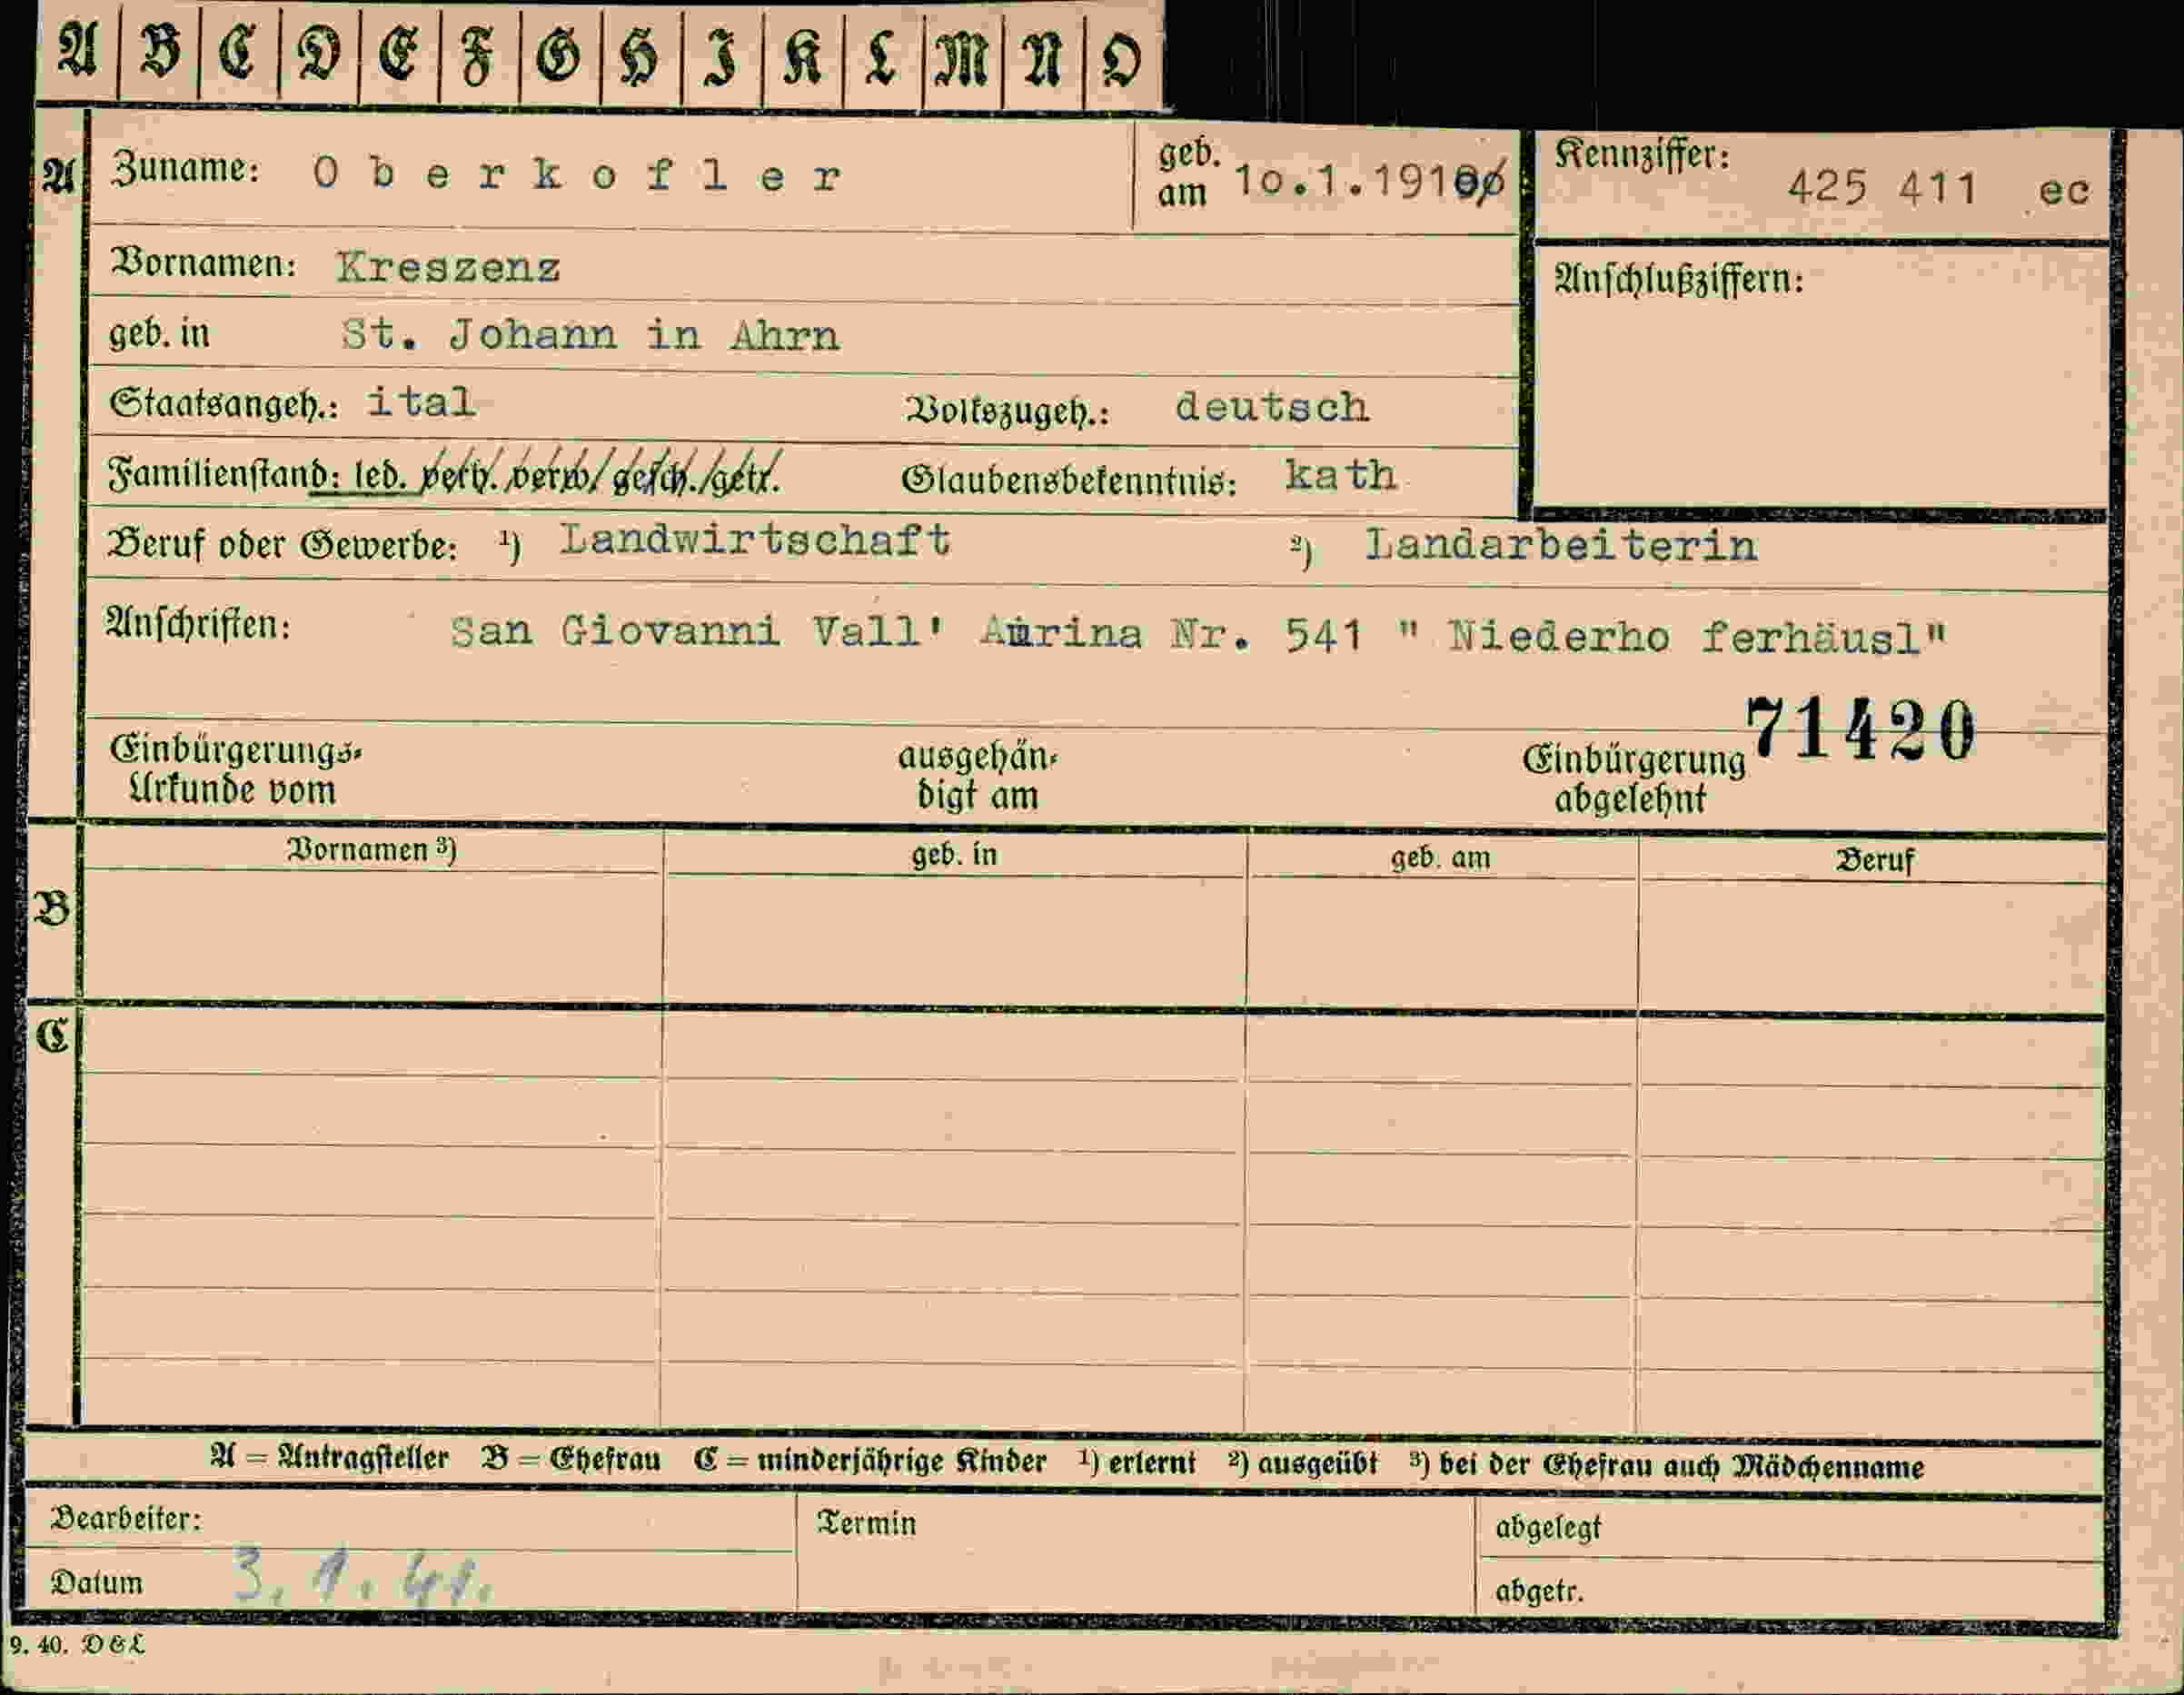 A B C D E F G H I K L M N O
A Zuname: Oberkofler geb. am 10.1.1910 Kennziffer: 425 411 ec
Vornamen: Kreszenz
Anschlußziffern:
geb. in St. Johann in Ahrn
Staatsangeh.: ital Volkszugeh.: deutsch
Familienstand: led. verh. verw. gesch. getr. Glaubensbekenntnis: kath
Beruf oder Gewerbe: ¹) Landwirtschaft ²) Landarbeiterin
Anschriften: San Giovanni Vall' Aurina Nr. 541 " Niederho ferhäusl"
71420
Einbürgerungs-Urkunde vom ausgehändigt am Einbürgerung abgelehnt
Vornamen ³) geb. in geb. am Beruf
B
C
A = Antragsteller B = Ehefrau C = minderjährige Kinder ¹) erlernt ²) ausgeübt ³) bei der Ehefrau auch Mädchenname
Bearbeiter: Termin abgelegt
Datum 3.1.41. abgetr.
9. 40. D&L